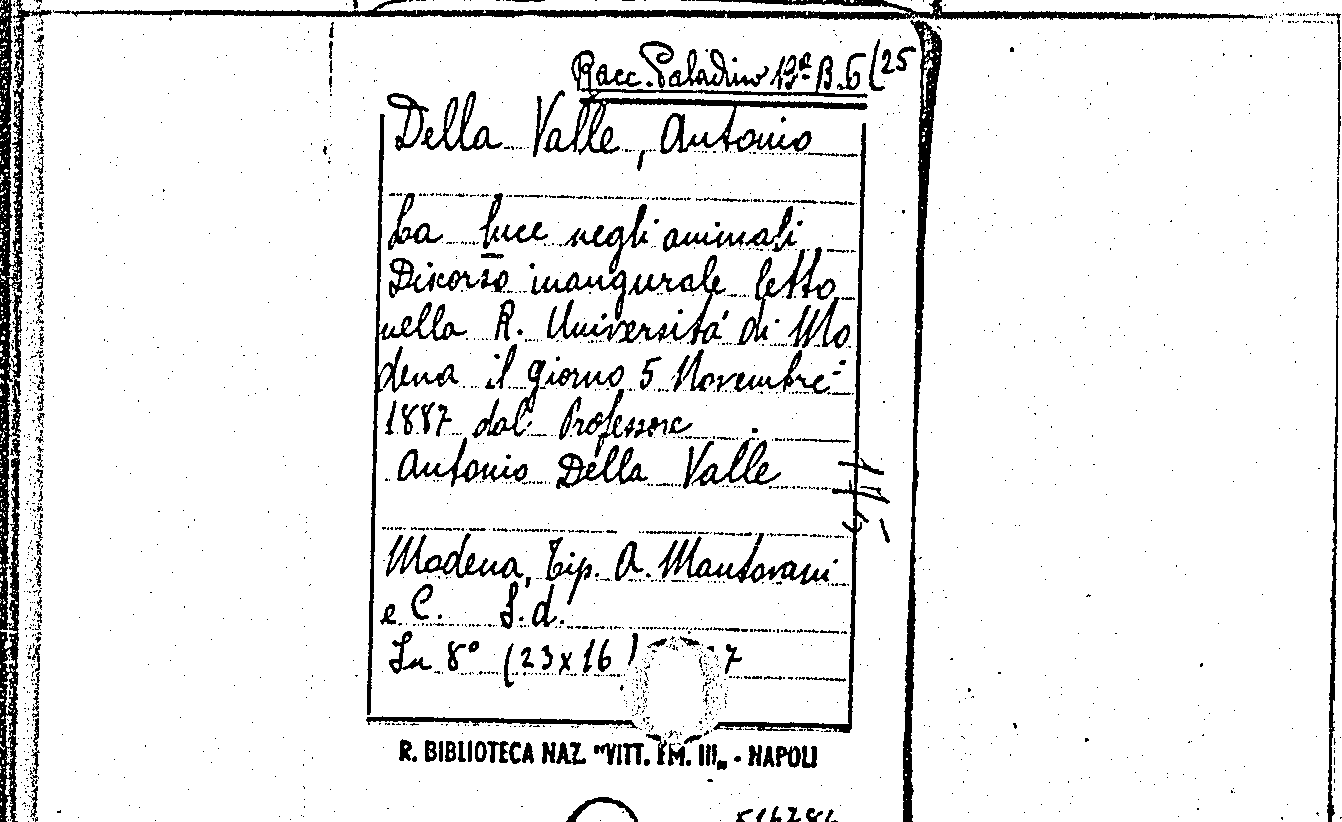 Racc. Paladino 13ª B. 6 (25
Della Valle, Antonio
La luce negli animali
Discorso inaugurale letto
nella R. Universitá di Mo
dena il giorno 5 Novembre
1887 dal Professore
Antonio Della Valle
Modena, Tip. A. Mantovani
e C. S. d.
In 8° (23x16) 7
R. BIBLIOTECA NAZ. "VITT. EM. III„ - NAPOLI